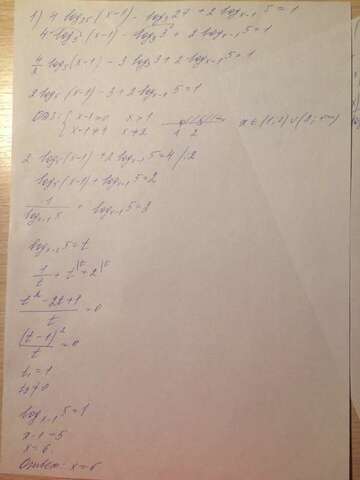 1) 4 log₂₅(x-1) - log₃27 + 2 log ₓ₋₁ 5 = 1
4 log₅²(x-1) - log₃3³ + 2 log ₓ₋₁ 5 = 1
4/2 log₅(x-1) - 3 log₃3 + 2 log ₓ₋₁ 5 = 1
2 log₅(x-1) - 3 + 2 log ₓ₋₁ 5 = 1
ОДЗ: { x-1>0 x>1
x-1≠1 x≠2 1 2 x∈(1;2)∪(2;+∞)
2 log₅(x-1) + 2 log ₓ₋₁ 5 = 4 /:2
log₅(x-1) + log ₓ₋₁ 5 = 2
1/log ₓ₋₁ 5 + log ₓ₋₁ 5 = 2
log ₓ₋₁ 5 = t
1/t + t = 2
(t² - 2t + 1)/t = 0
(t-1)²/t = 0
t₁ = 1
t≠0
log ₓ₋₁ 5 = 1
x-1=5
x=6
Ответ: x=6